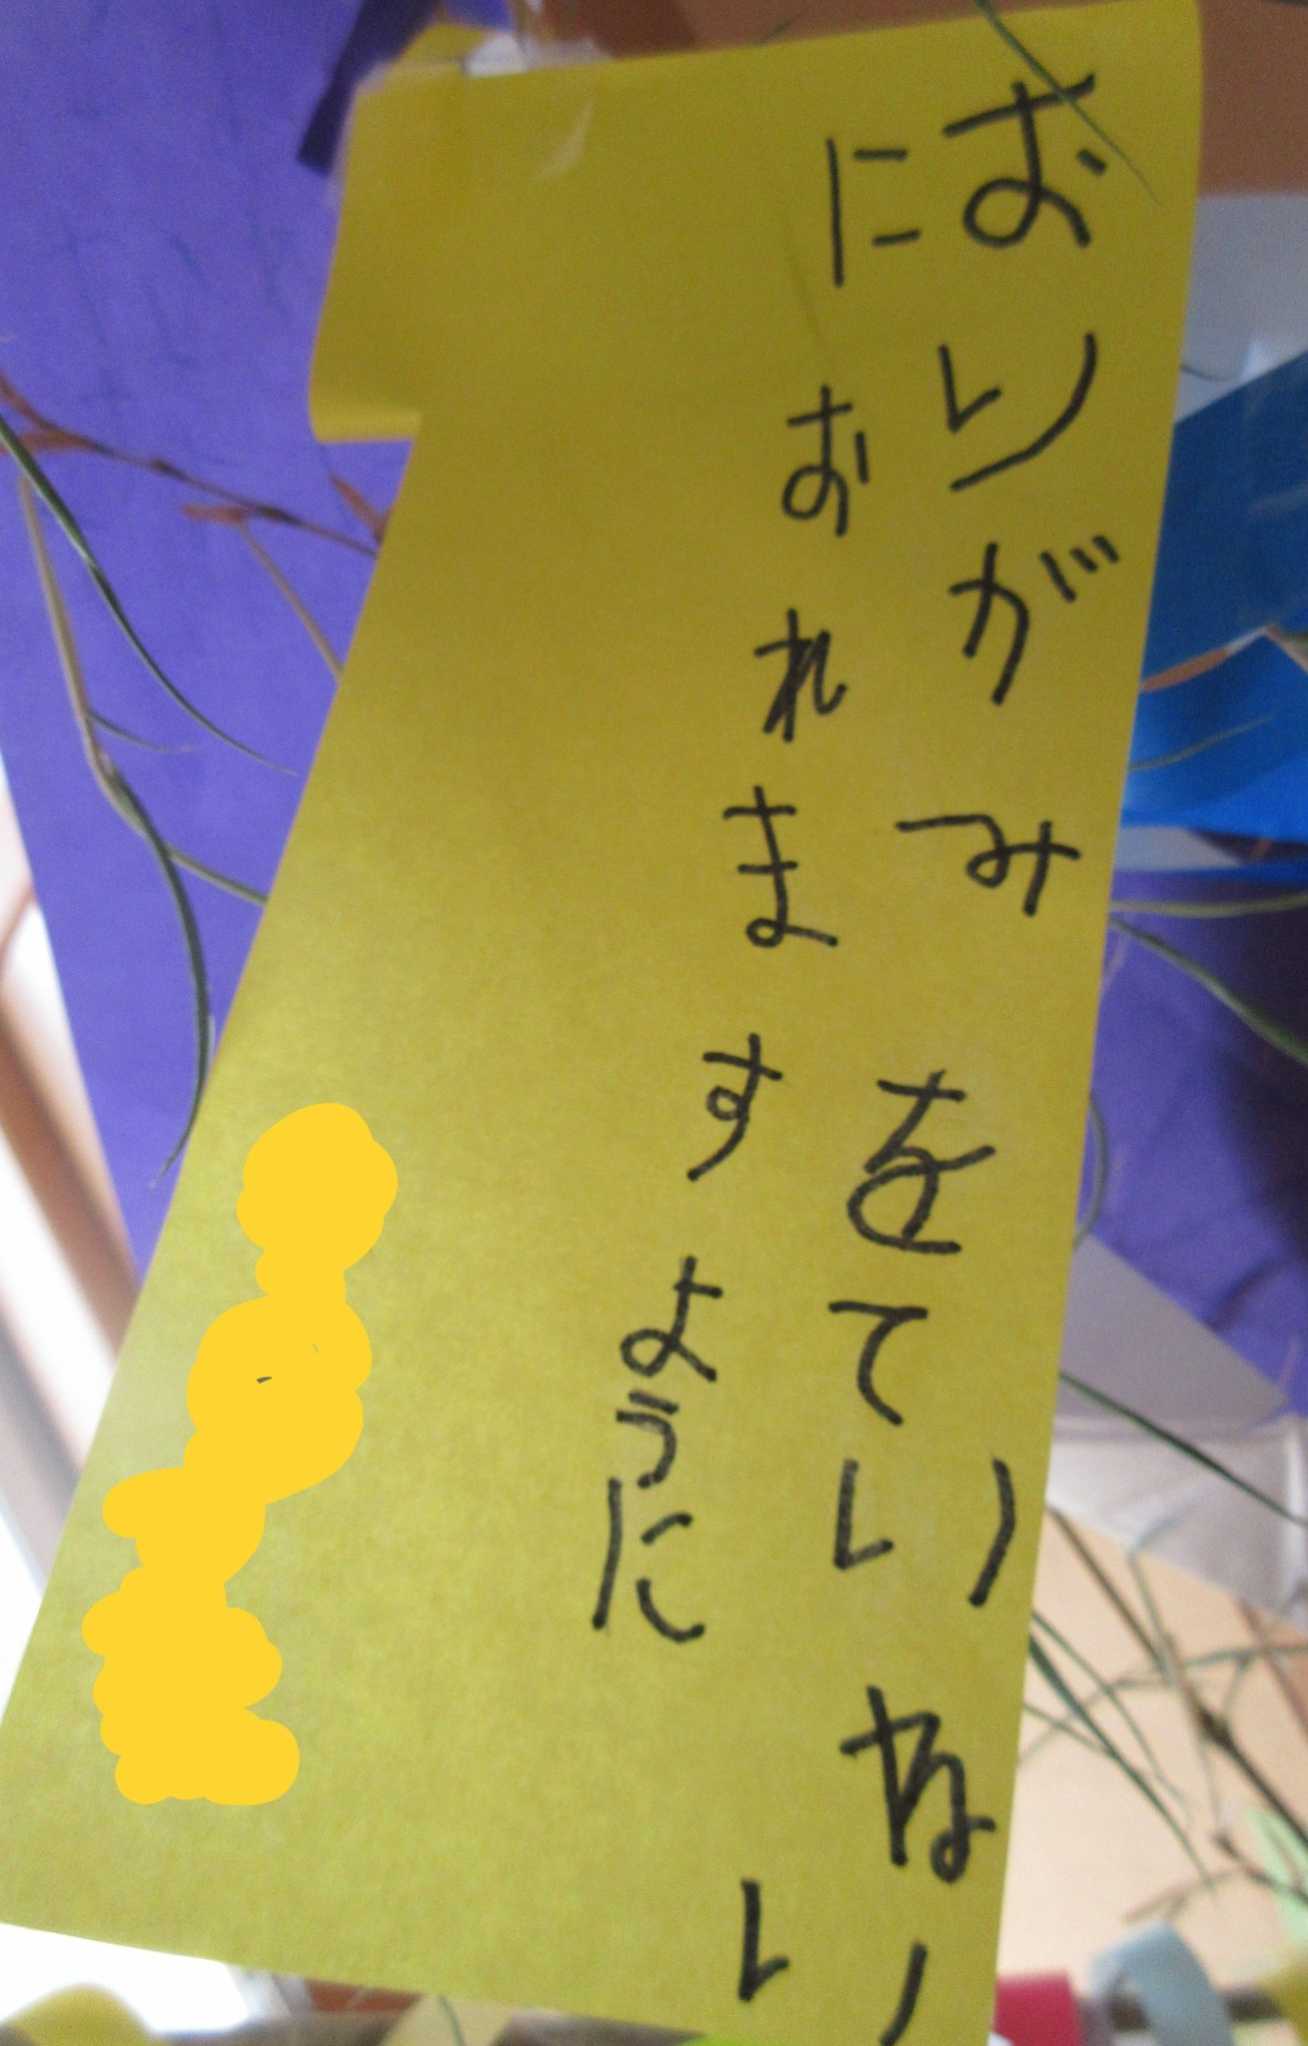 おりがみをていねい
におれますように